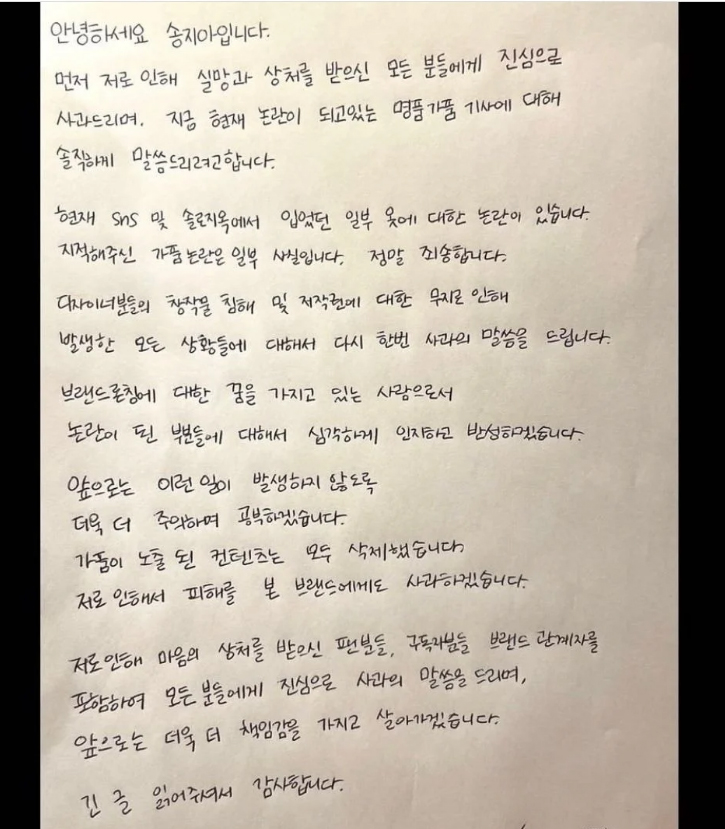 안녕하세요 송지아입니다.
먼저 저로 인해 실망과 상처를 받으신 모든 분들에게 진심으로
사과드리며, 지금 현재 논란이 되고있는 명품가품 기사에 대해
솔직하게 말씀드리려고합니다.
현재 sns 및 솔로지옥에서 입었던 일부 옷에 대한 논란이 있습니다.
지적해주신 가품논란은 일부 사실입니다. 정말 죄송합니다.
디자이너분들의 창작물 침해 및 저작권에 대한 무지로 인해
발생한 모든 상황들에 대해서 다시 한번 사과의 말씀을 드립니다.
브랜드론칭에 대한 꿈을 가지고 있는 사람으로서
논란이 된 부분들에 대해서 심각하게 인지하고 반성하겠습니다.
앞으로는 이런 일이 발생하지 않도록
더욱 더 주의하며 공부하겠습니다.
가품이 노출 된 컨텐츠는 모두 삭제했습니다
저로 인해서 피해를 본 브랜드에게도 사과하겠습니다.
저로인해 마음의 상처를 받으신 팬분들, 구독자분들 브랜드 관계자를
포함하여 모든 분들에게 진심으로 사과의 말씀을 드리며,
앞으로는 더욱 더 책임감을 가지고 살아가겠습니다.
긴 글 읽어주셔서 감사합니다.